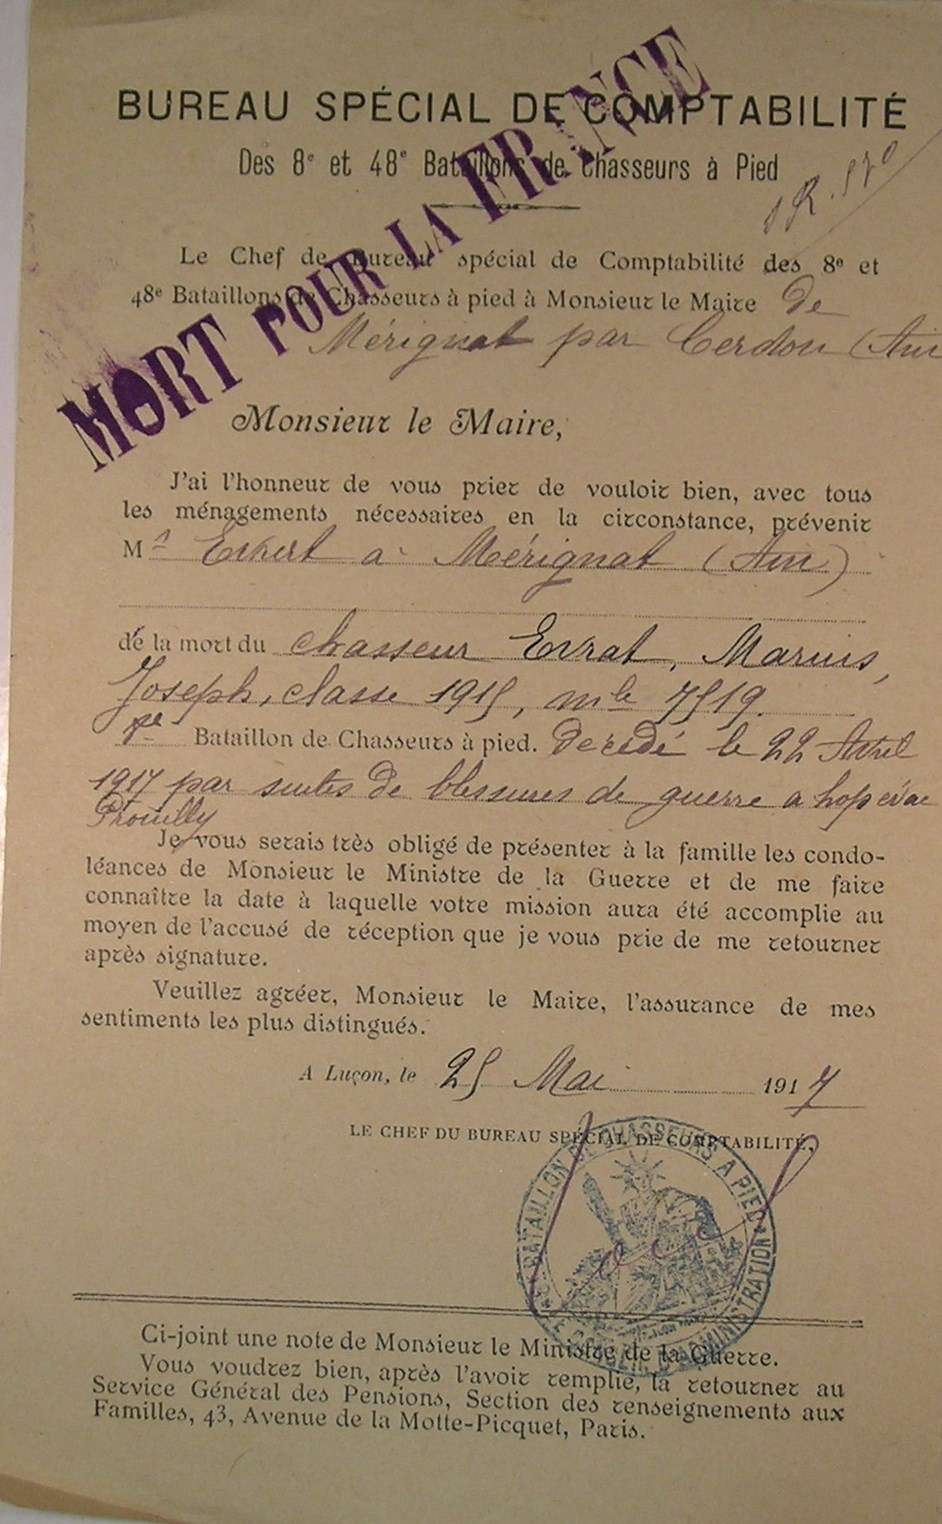 BUREAU SPÉCIAL DE COMPTABILITÉ
Des 8e et 48e Bataillons de Chasseurs à Pied
MORT POUR LA FRANCE
Le Chef de Bureau spécial de Comptabilité des 8e et
48e Bataillons de Chasseurs à pied à Monsieur le Maire de
Mérignat par Cerdon (Ain
Monsieur le Maire,
J'ai l'honneur de vous prier de vouloir bien, avec tous
les ménagements nécessaires en la circonstance, prévenir
Mr à Mérignat (Ain)
de la mort du chasseur Evrat, Marius,
Joseph, classe 1915, mle 7519.
Bataillon de Chasseurs à pied. décédé le 22 Avril
1917 par suites de blessures de guerre a hop évac
Prouilly
Je vous serais très obligé de présenter à la famille les condo-
léances de Monsieur le Ministre de la Guerre et de me faire
connaître la date à laquelle votre mission aura été accomplie au
moyen de l'accusé de réception que je vous prie de me retourner
après signature.
Veuillez agréer, Monsieur le Maire, l'assurance de mes
sentiments les plus distingués.
A Luçon, le 25 Mai 1917
LE CHEF DU BUREAU SPÉCIAL DE COMPTABILITÉ,
BATAILLON DE CHASSEURS A PIED
D'ADMINISTRATION
Ci-joint une note de Monsieur le Ministre de la Guerre.
Vous voudrez bien, après l'avoir remplie, la retourner au
Service Général des Pensions, Section des renseignements aux
Familles, 43, Avenue de la Motte-Picquet, Paris.